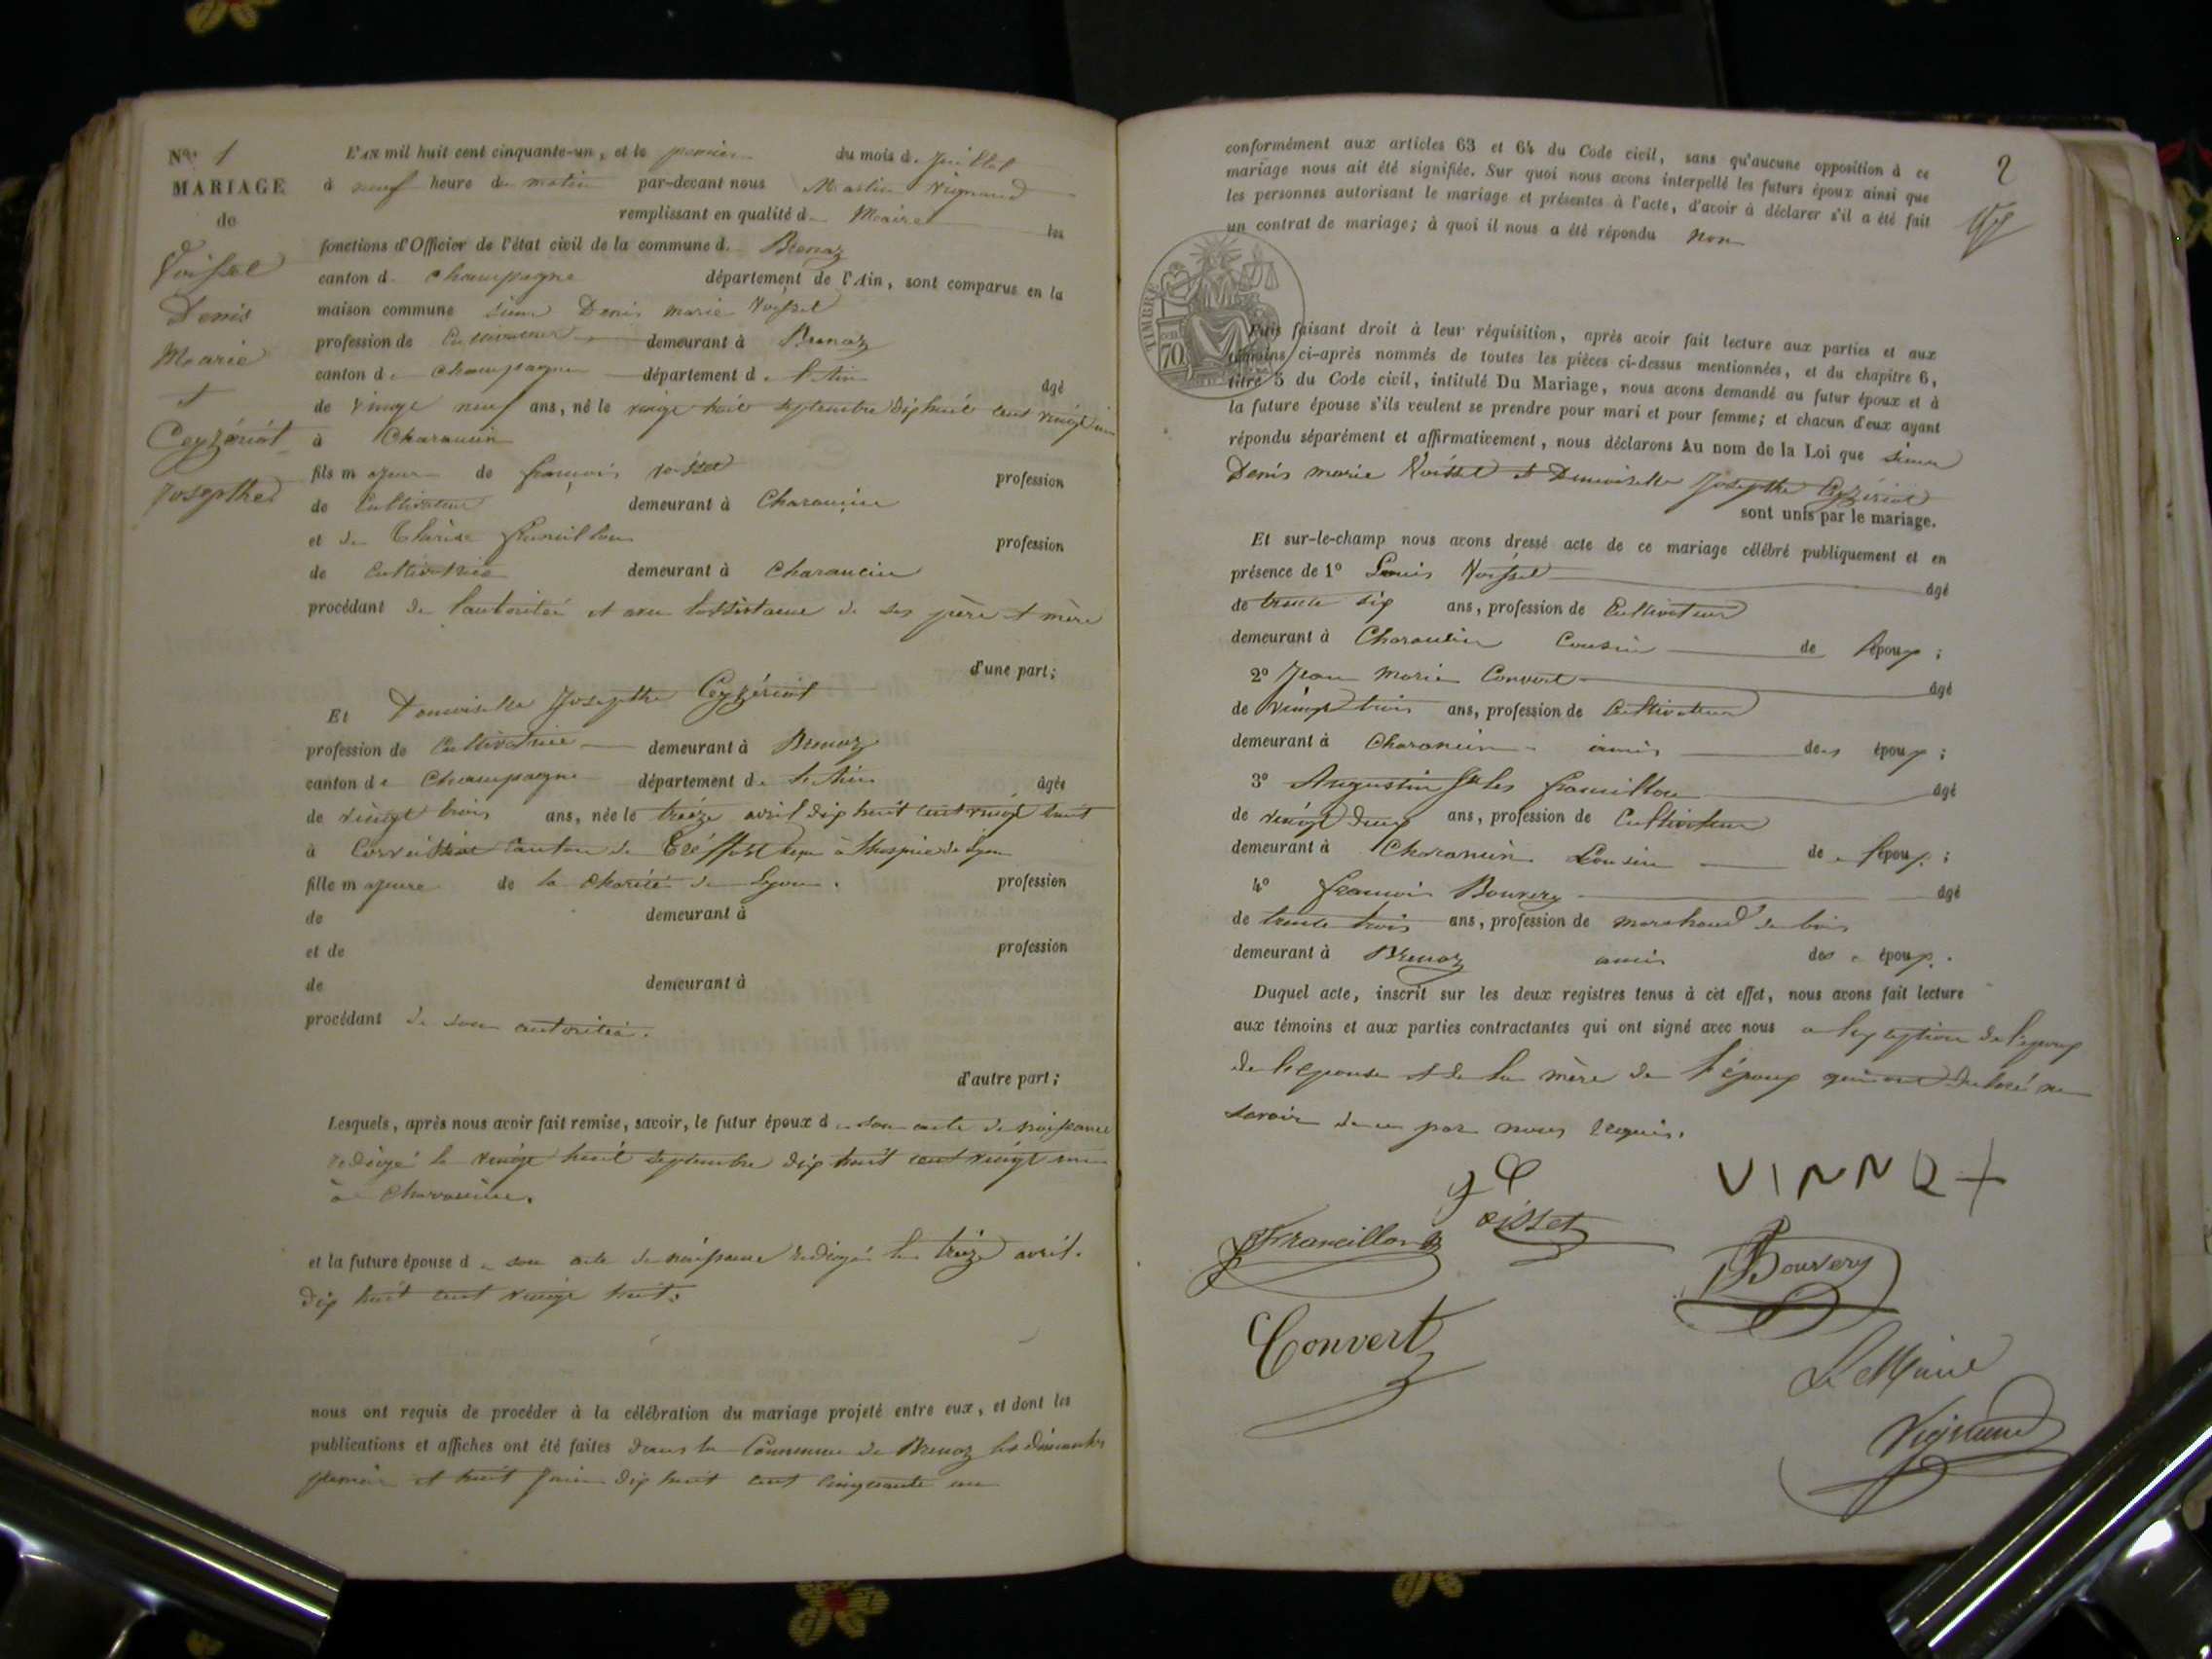 No. 1
MARIAGE
de
Voissel
Denis
Marie
et
Ceyzériat
Josepthe
L'AN mil huit cent cinquante-un, et le premier du mois de Juillet
à neuf heure du matin par-devant nous Martin Vignand
remplissant en qualité de Maire les
fonctions d'Officier de l'état civil de la commune de Brenaz
canton de champagne département de l'Ain, sont comparus en la
maison commune sieur Denis marie Voissel
profession de Cultivateur demeurant à Brenaz
canton de champagne département de l'ain âgé
de vingt neuf ans, né le vingt huit septembre dix huit cent vingt un
à Charancin
fils majeur de françois voissel profession
de Cultivateur demeurant à Charancin
et de profession
de Cultivatrice demeurant à Charancin
procédant de l'autoritée et avec l'assistance de ses père et mère
d'une part;
Et Demoiselle Josepthe Ceyzériat
profession de Cultivatrice demeurant à Brenaz
canton de Champagne département de l'Ain âgée
de vingt trois ans, née le treize avril dix huit cent vingt huit
à canton de à l'hospice de Lyon
fille majeure de la charité de Lyon. profession
de demeurant à
et de profession
de demeurant à
procédant de son autoritée.
d'autre part;
Lesquels, après nous avoir fait remise, savoir, le futur époux de son acte de naissance
rédigé le vingt huit septembre dix huit cent vingt un
à Charancin.
et la future épouse de son acte de naissance rédigé le treize avril.
dix huit cent vingt huit.
nous ont requis de procéder à la célébration du mariage projeté entre eux, et dont les
publications et affiches ont été faites dans la Commune de Brenaz les dimanches
premier et huit Juin dix huit cent cinquante un
2
conformément aux articles 63 et 64 du Code civil, sans qu'aucune opposition à ce
mariage nous ait été signifiée. Sur quoi nous avons interpellé les futurs époux ainsi que
les personnes autorisant le mariage et présentes à l'acte, d'avoir à déclarer s'il a été fait
un contrat de mariage; à quoi il nous a été répondu non
TIMBRE
70
Puis faisant droit à leur réquisition, après avoir fait lecture aux parties et aux
témoins ci-après nommés de toutes les pièces ci-dessus mentionnées, et du chapitre 6,
titre 5 du Code civil, intitulé Du Mariage, nous avons demandé au futur époux et à
la future épouse s'ils veulent se prendre pour mari et pour femme; et chacun d'eux ayant
répondu séparément et affirmativement, nous déclarons Au nom de la Loi que sieur
Denis marie Voissel et Demoiselle Josepthe Ceyzériat
sont unis par le mariage.
Et sur-le-champ nous avons dressé acte de ce mariage célébré publiquement et en
présence de 1° Louis Voissel âgé
de trente six ans, profession de Cultivateur
demeurant à Charancin Cousin de l'époux;
2° Jean Marie Convert âgé
de vingt trois ans, profession de Cultivateur
demeurant à Charancin amis des époux;
3° Augustin francillon âgé
de vingt deux ans, profession de Cultivateur
demeurant à Charancin Cousin de l'époux;
4° francois Bouvery âgé
de trente trois ans, profession de marchand de bois
demeurant à Brenaz amis des époux.
Duquel acte, inscrit sur les deux registres tenus à cet effet, nous avons fait lecture
aux témoins et aux parties contractantes qui ont signé avec nous a l'exception de l'epoux
de l'épouse et de la mère de l'époux qui ont declaré ne
savoir de ce par nous requis.
VINNET
Voisset
Francillon
Bouvery
Convert
Le Maire
Vignand